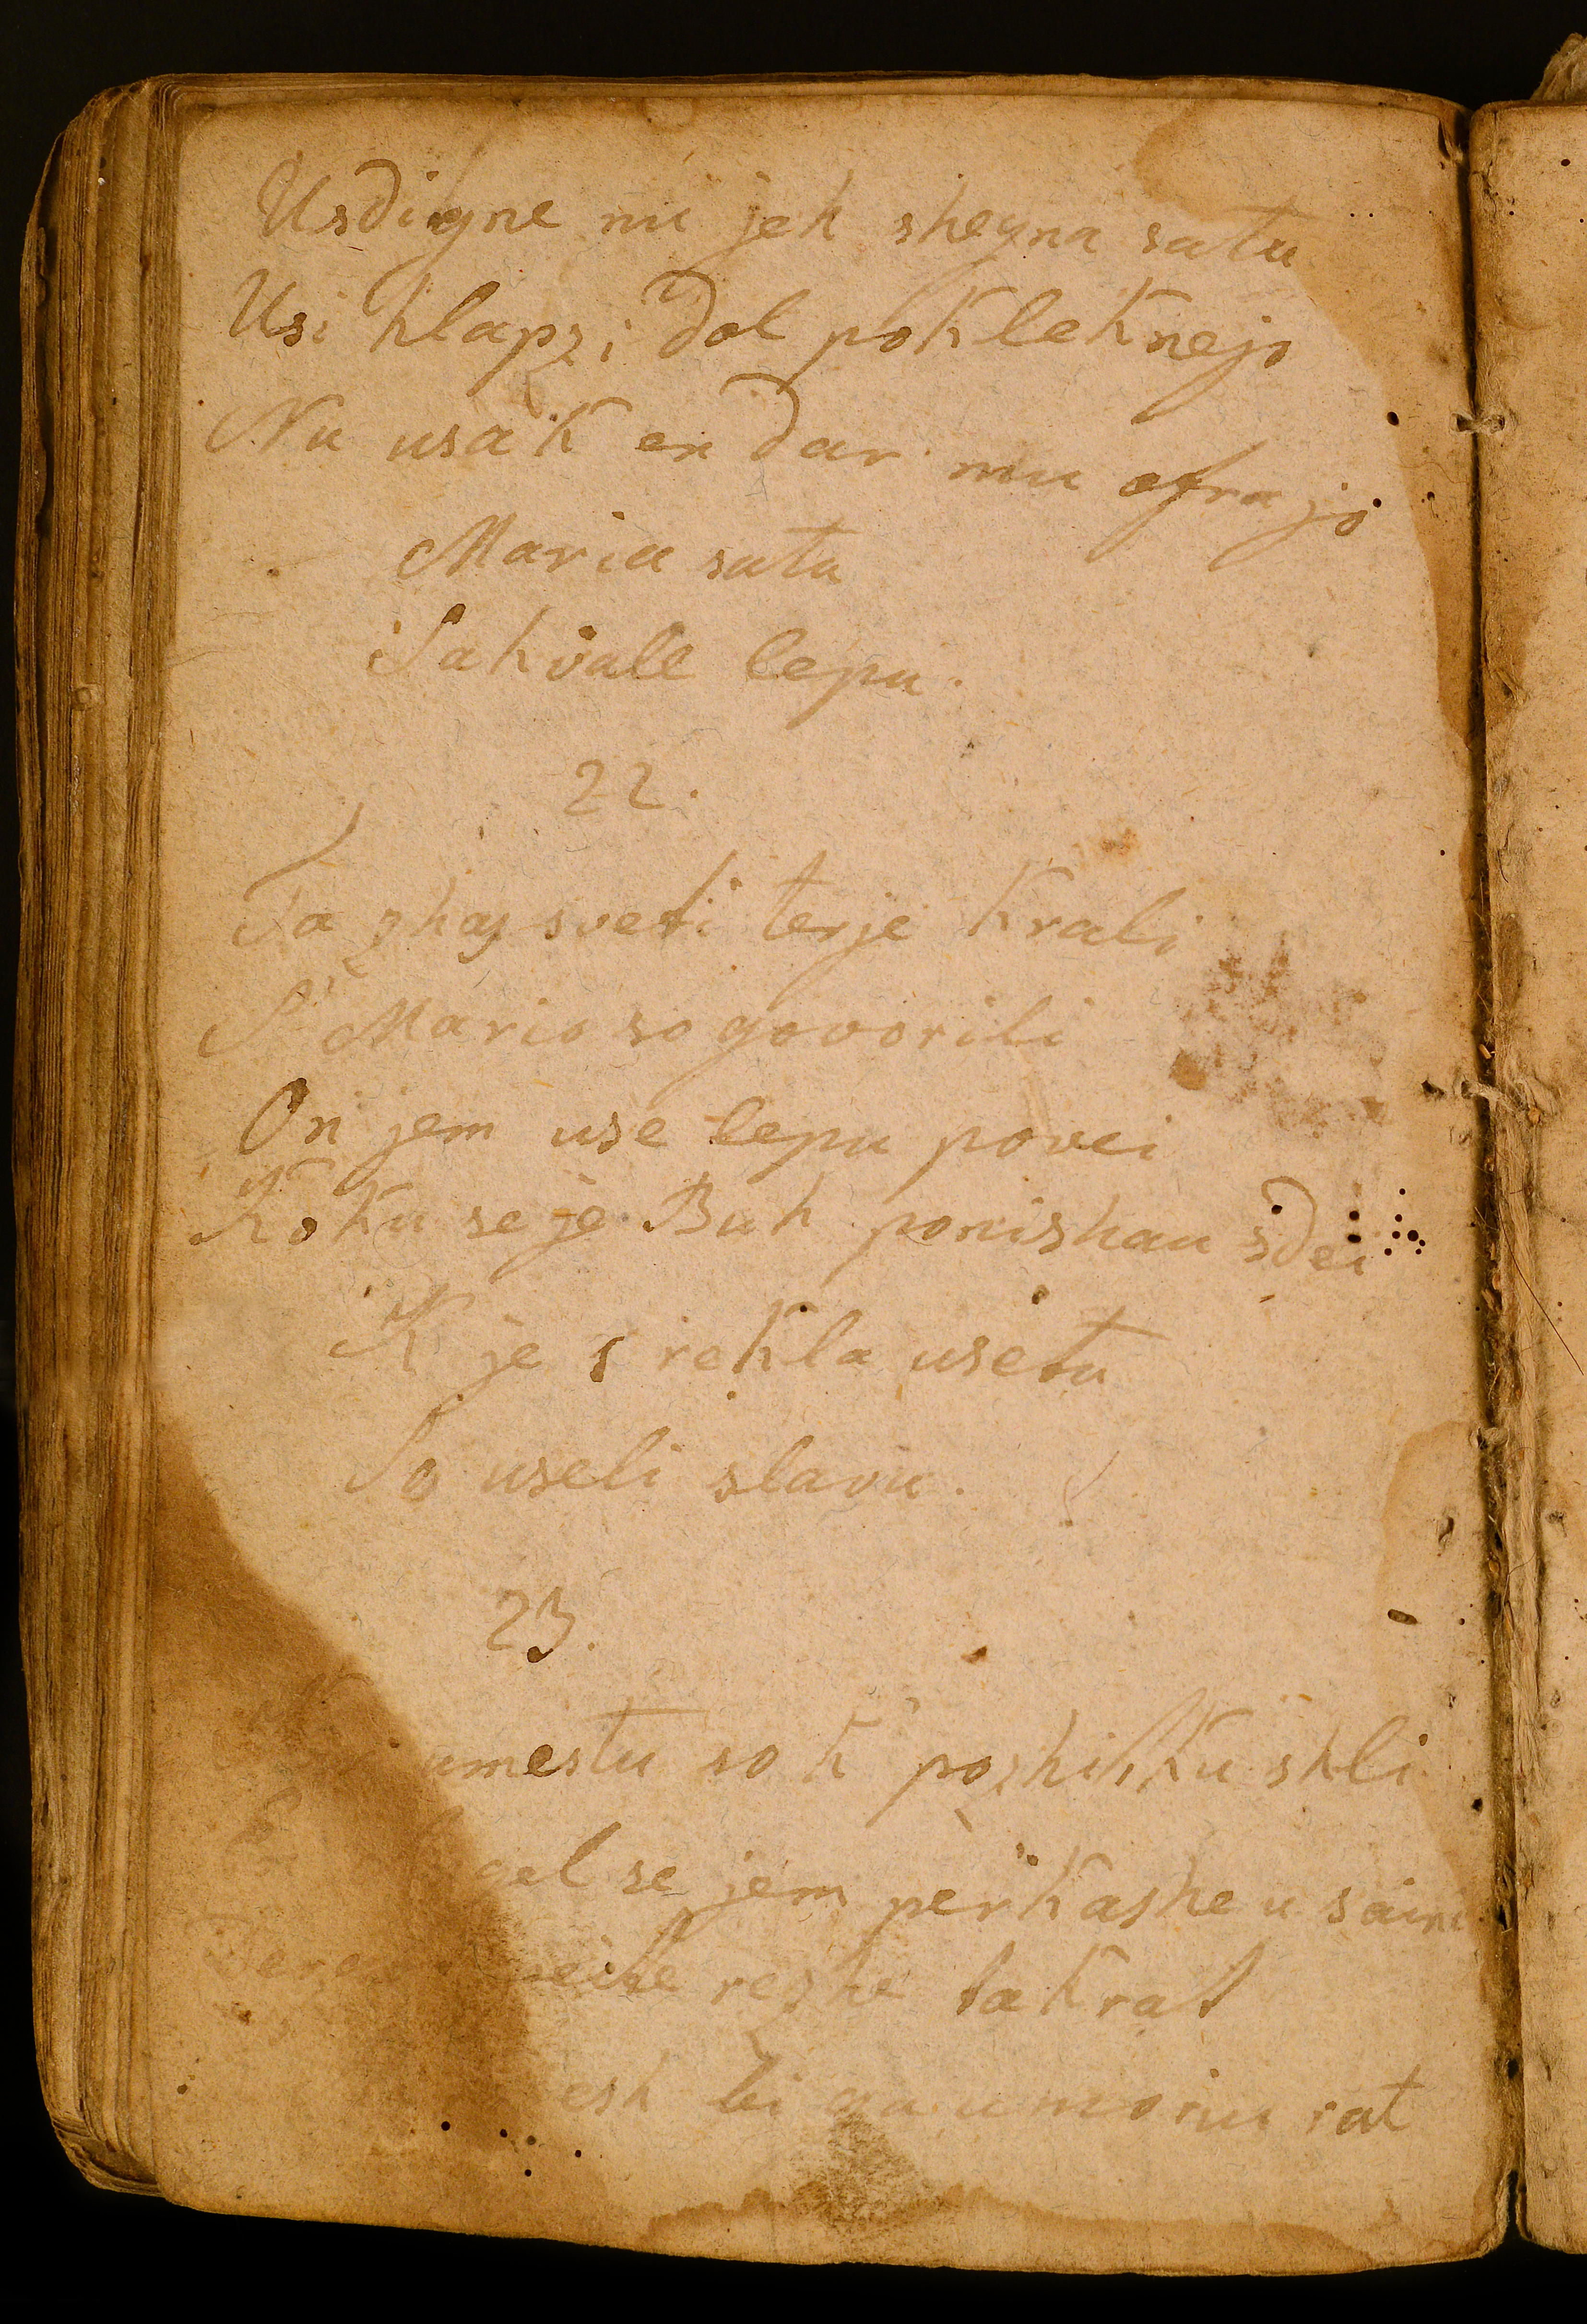 Usdigne nu jeh shegna satu
Usi hlapzi dol pokleknejo
Nu usak en dar mu ofrajo
Maria satu
Sahvale lepu.
22.
Ta zhas sveti terje Krali
S' Mario so govorili
On jem use lepu povei
Koku se je Buh ponishau sdei
K je s rekla usetu
So useli slavu.
23.
umestu so k pozhitku shli
gel se jem perkashe u saini
rezhe takrat
esh bi ga umoriu rat